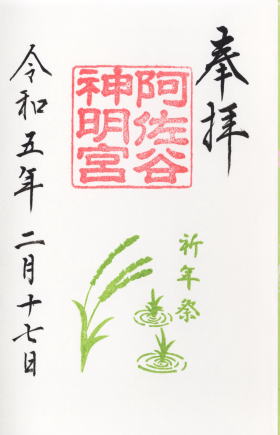 奉拝
阿佐谷
神明宮
祈年祭
令和五年二月十七日